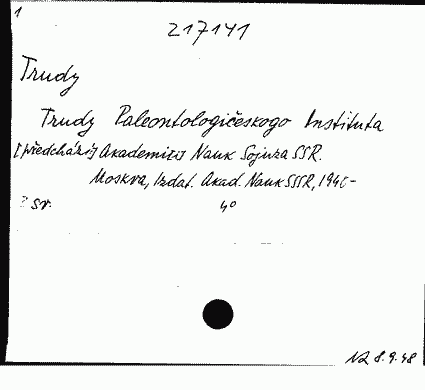 1
217141
Trudy
Trudy Paleontologičeskogo Instituta
[předchází] Akademii Nauk Sojuza SSR.
Moskva, Izdat. Akad. Nauk SSSR, 194 -
? sv. 4°
8.9.48